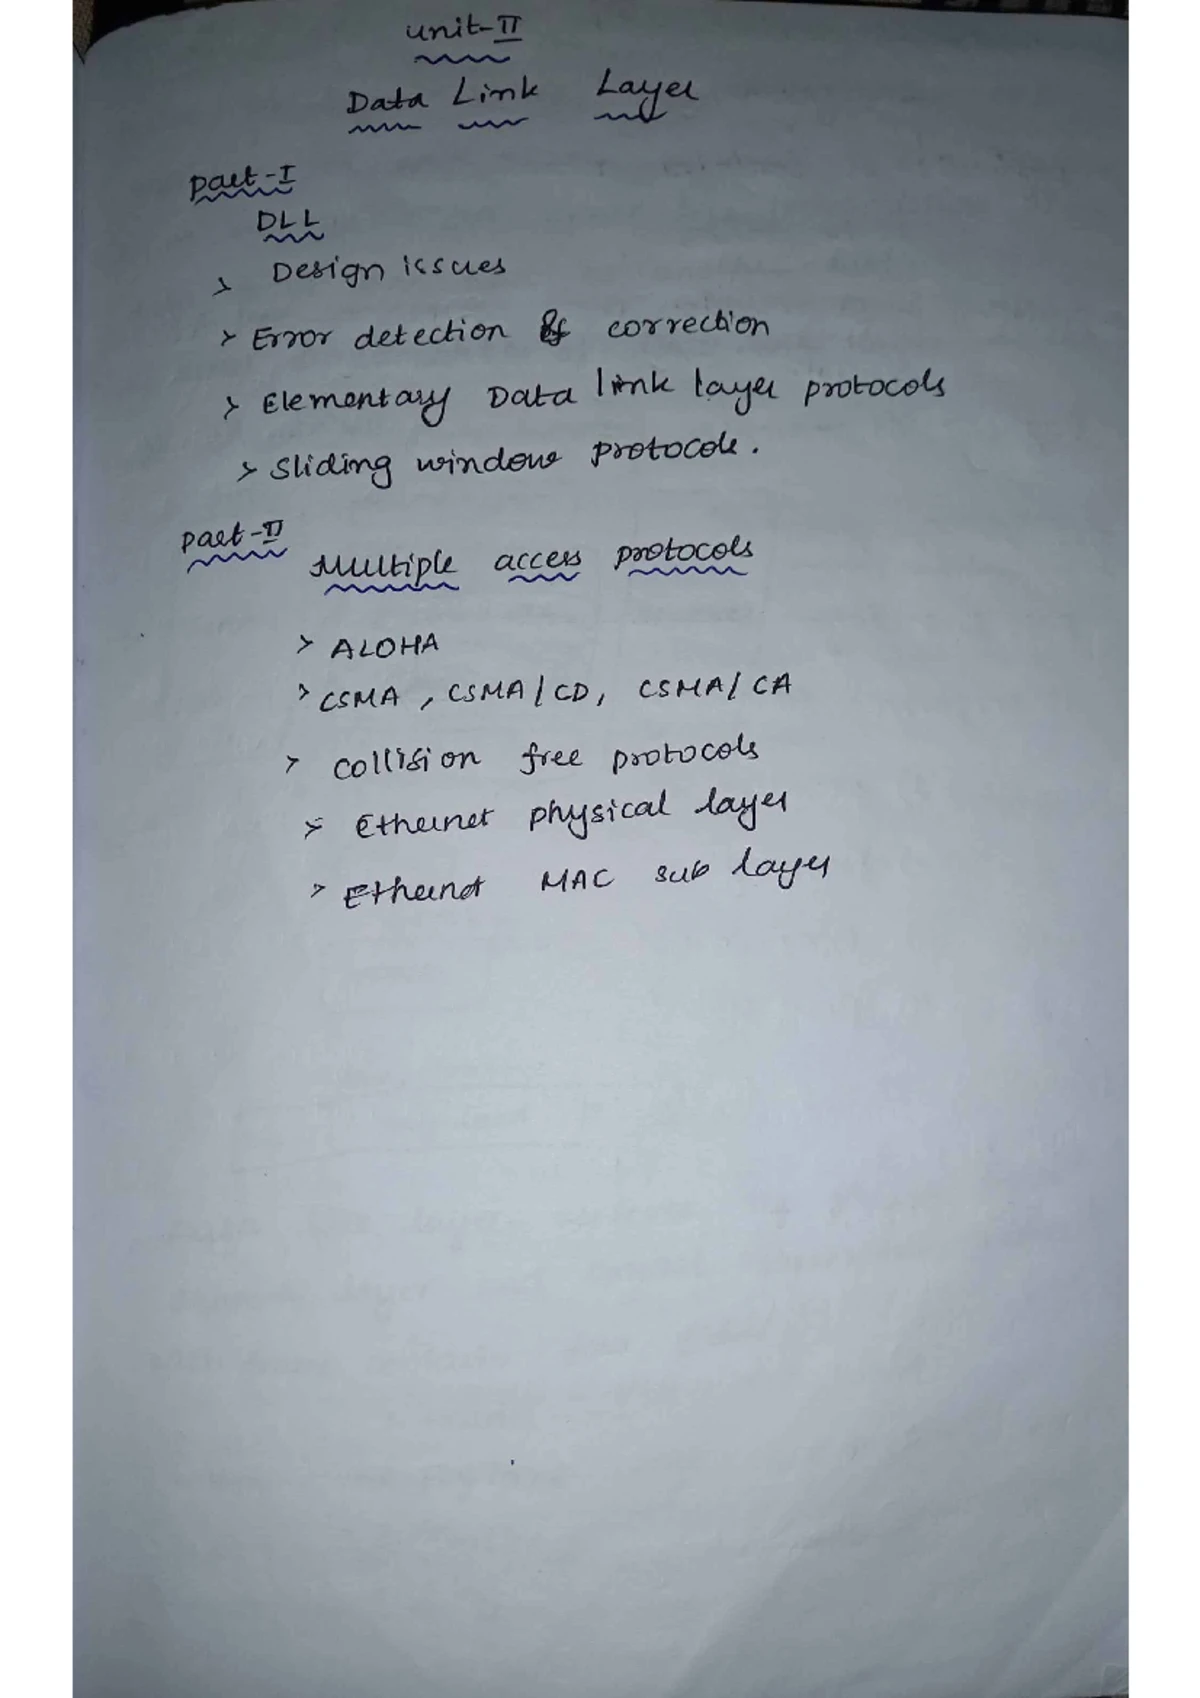 unit-II
Data Link Layer
part-I
DLL
> Design issues
> Error detection & correction
> Elementary Data link layer protocols
> Sliding window protocols.
part-II
Multiple access protocols
> ALOHA
> CSMA, CSMA/CD, CSMA/CA
> collision free protocols
> Ethernet physical layer
> Ethernet MAC sub layer